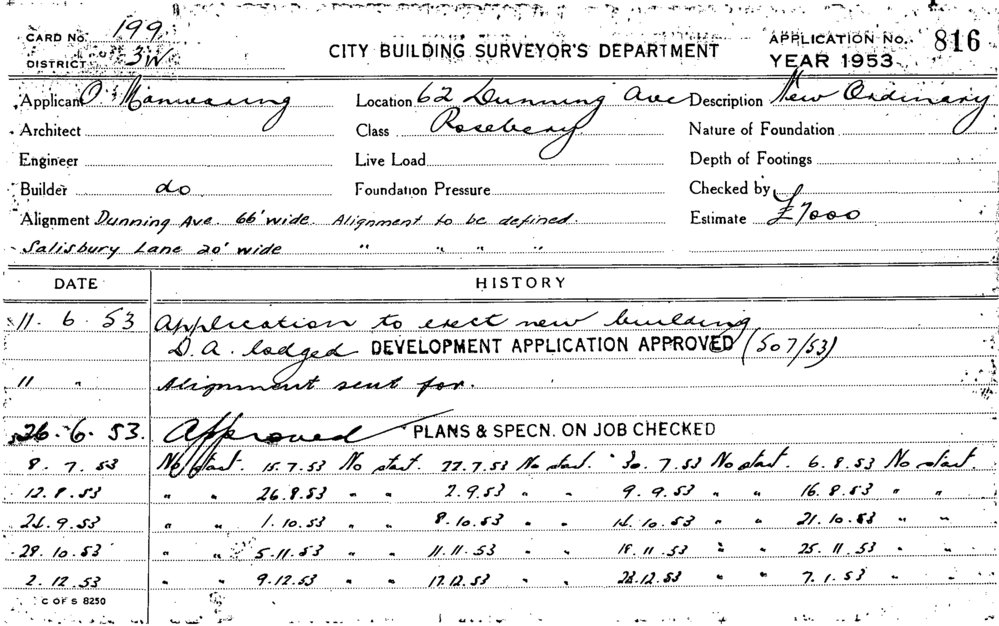 CARD No. 199
DISTRICT 3W
CITY BUILDING SURVEYOR'S DEPARTMENT
APPLICATION No. 816
YEAR 1953
Applicant O. Manwaring Location 62 Dunning Ave Description New Ordinary
Architect Class Rosebery Nature of Foundation
Engineer Live Load Depth of Footings
Builder do Foundation Pressure Checked by
Alignment Dunning Ave. 66' wide. Alignment to be defined. Estimate £7000
Salisbury Lane 20' wide " " " "
DATE HISTORY
11. 6. 53 Application to erect new building
D.A. lodged DEVELOPMENT APPLICATION APPROVED (507/53)
11 " Alignment sent for.
26. 6. 53. Approved PLANS & SPECN. ON JOB CHECKED
8. 7. 53 No start. 15.7.53 No start. 22.7.53 No start. 30. 7. 53 No start. 6. 8. 53 No start.
12. 8. 53 " " 26.8.53 " " 2.9.53 " " 9.9.53 " " 16.9.53 " "
24.9.53 " " 1.10.53 " " 8.10.53 " " 14.10.53 " " 21.10.53 " "
29.10.53 " " 5.11.53 " " 11.11.53 " " 18.11.53 " " 25.11.53 " "
2.12.53 " " 9.12.53 " " 17.12.53 " " 23.12.53 " " 7.1.53 " "
C OF S 8250